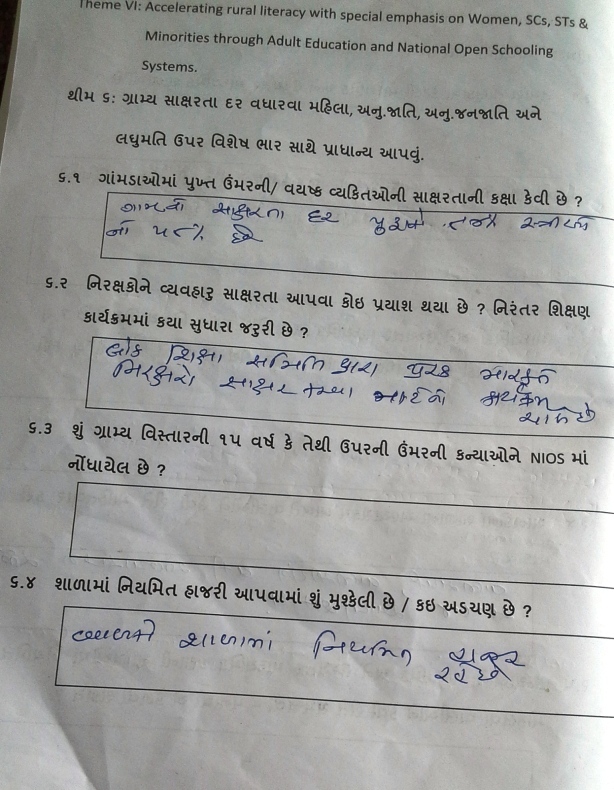 Theme VI: Accelerating rural literacy with special emphasis on Women, SCs, STs &
Minorities through Adult Education and National Open Schooling
Systems.
થીમ ૬: ગ્રામ્ય સાક્ષરતા દર વધારવા મહિલા, અનુ.જાતિ, અનુ.જનજાતિ અને
લઘુમતિ ઉપર વિશેષ ભાર સાથે પ્રાધાન્ય આપવું.
૬.૧ ગાંમડાઓમાં પુખ્ત ઉંમરની/ વયષ્ક વ્યકિતઓની સાક્ષરતાની કક્ષા કેવી છે ?
ગામની સાક્ષરતા દર પુરુષો
છે
૬.૨ નિરક્ષકોને વ્યવહારુ સાક્ષરતા આપવા કોઇ પ્રયાશ થયા છે ? નિરંતર શિક્ષણ
કાર્યક્રમમાં કયા સુધારા જરુરી છે ?
લોક શિક્ષા સમિતિ દ્વારા પ્રેરક મારફત
સાક્ષર
૬.૩ શું ગ્રામ્ય વિસ્તારની ૧૫ વર્ષ કે તેથી ઉપરની ઉંમરની કન્યાઓને NIOS માં
નોંધાયેલ છે ?
૬.૪ શાળામાં નિયમિત હાજરી આપવામાં શું મુશ્કેલી છે / કઇ અડચણ છે ?
શાળામાં નિયમિત હાજર
રહે છે